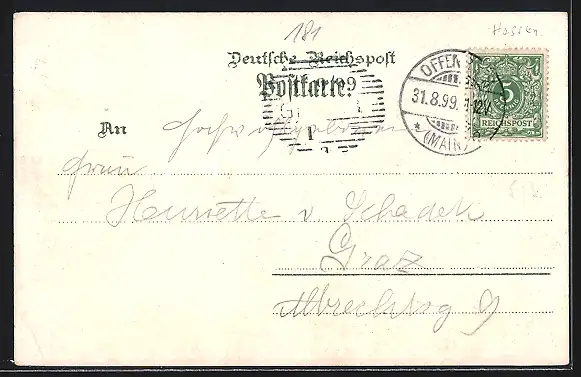 181
Hessen.
Deutsche Reichspost
Postkarte. 9
OFFEN
31.8.99. 11-12V.
* (MAIN)
5
REICHSPOST
1
An Hochwohlgeboren
Frau
Henriette v. Schadek
Graz
Albrechtsg 9